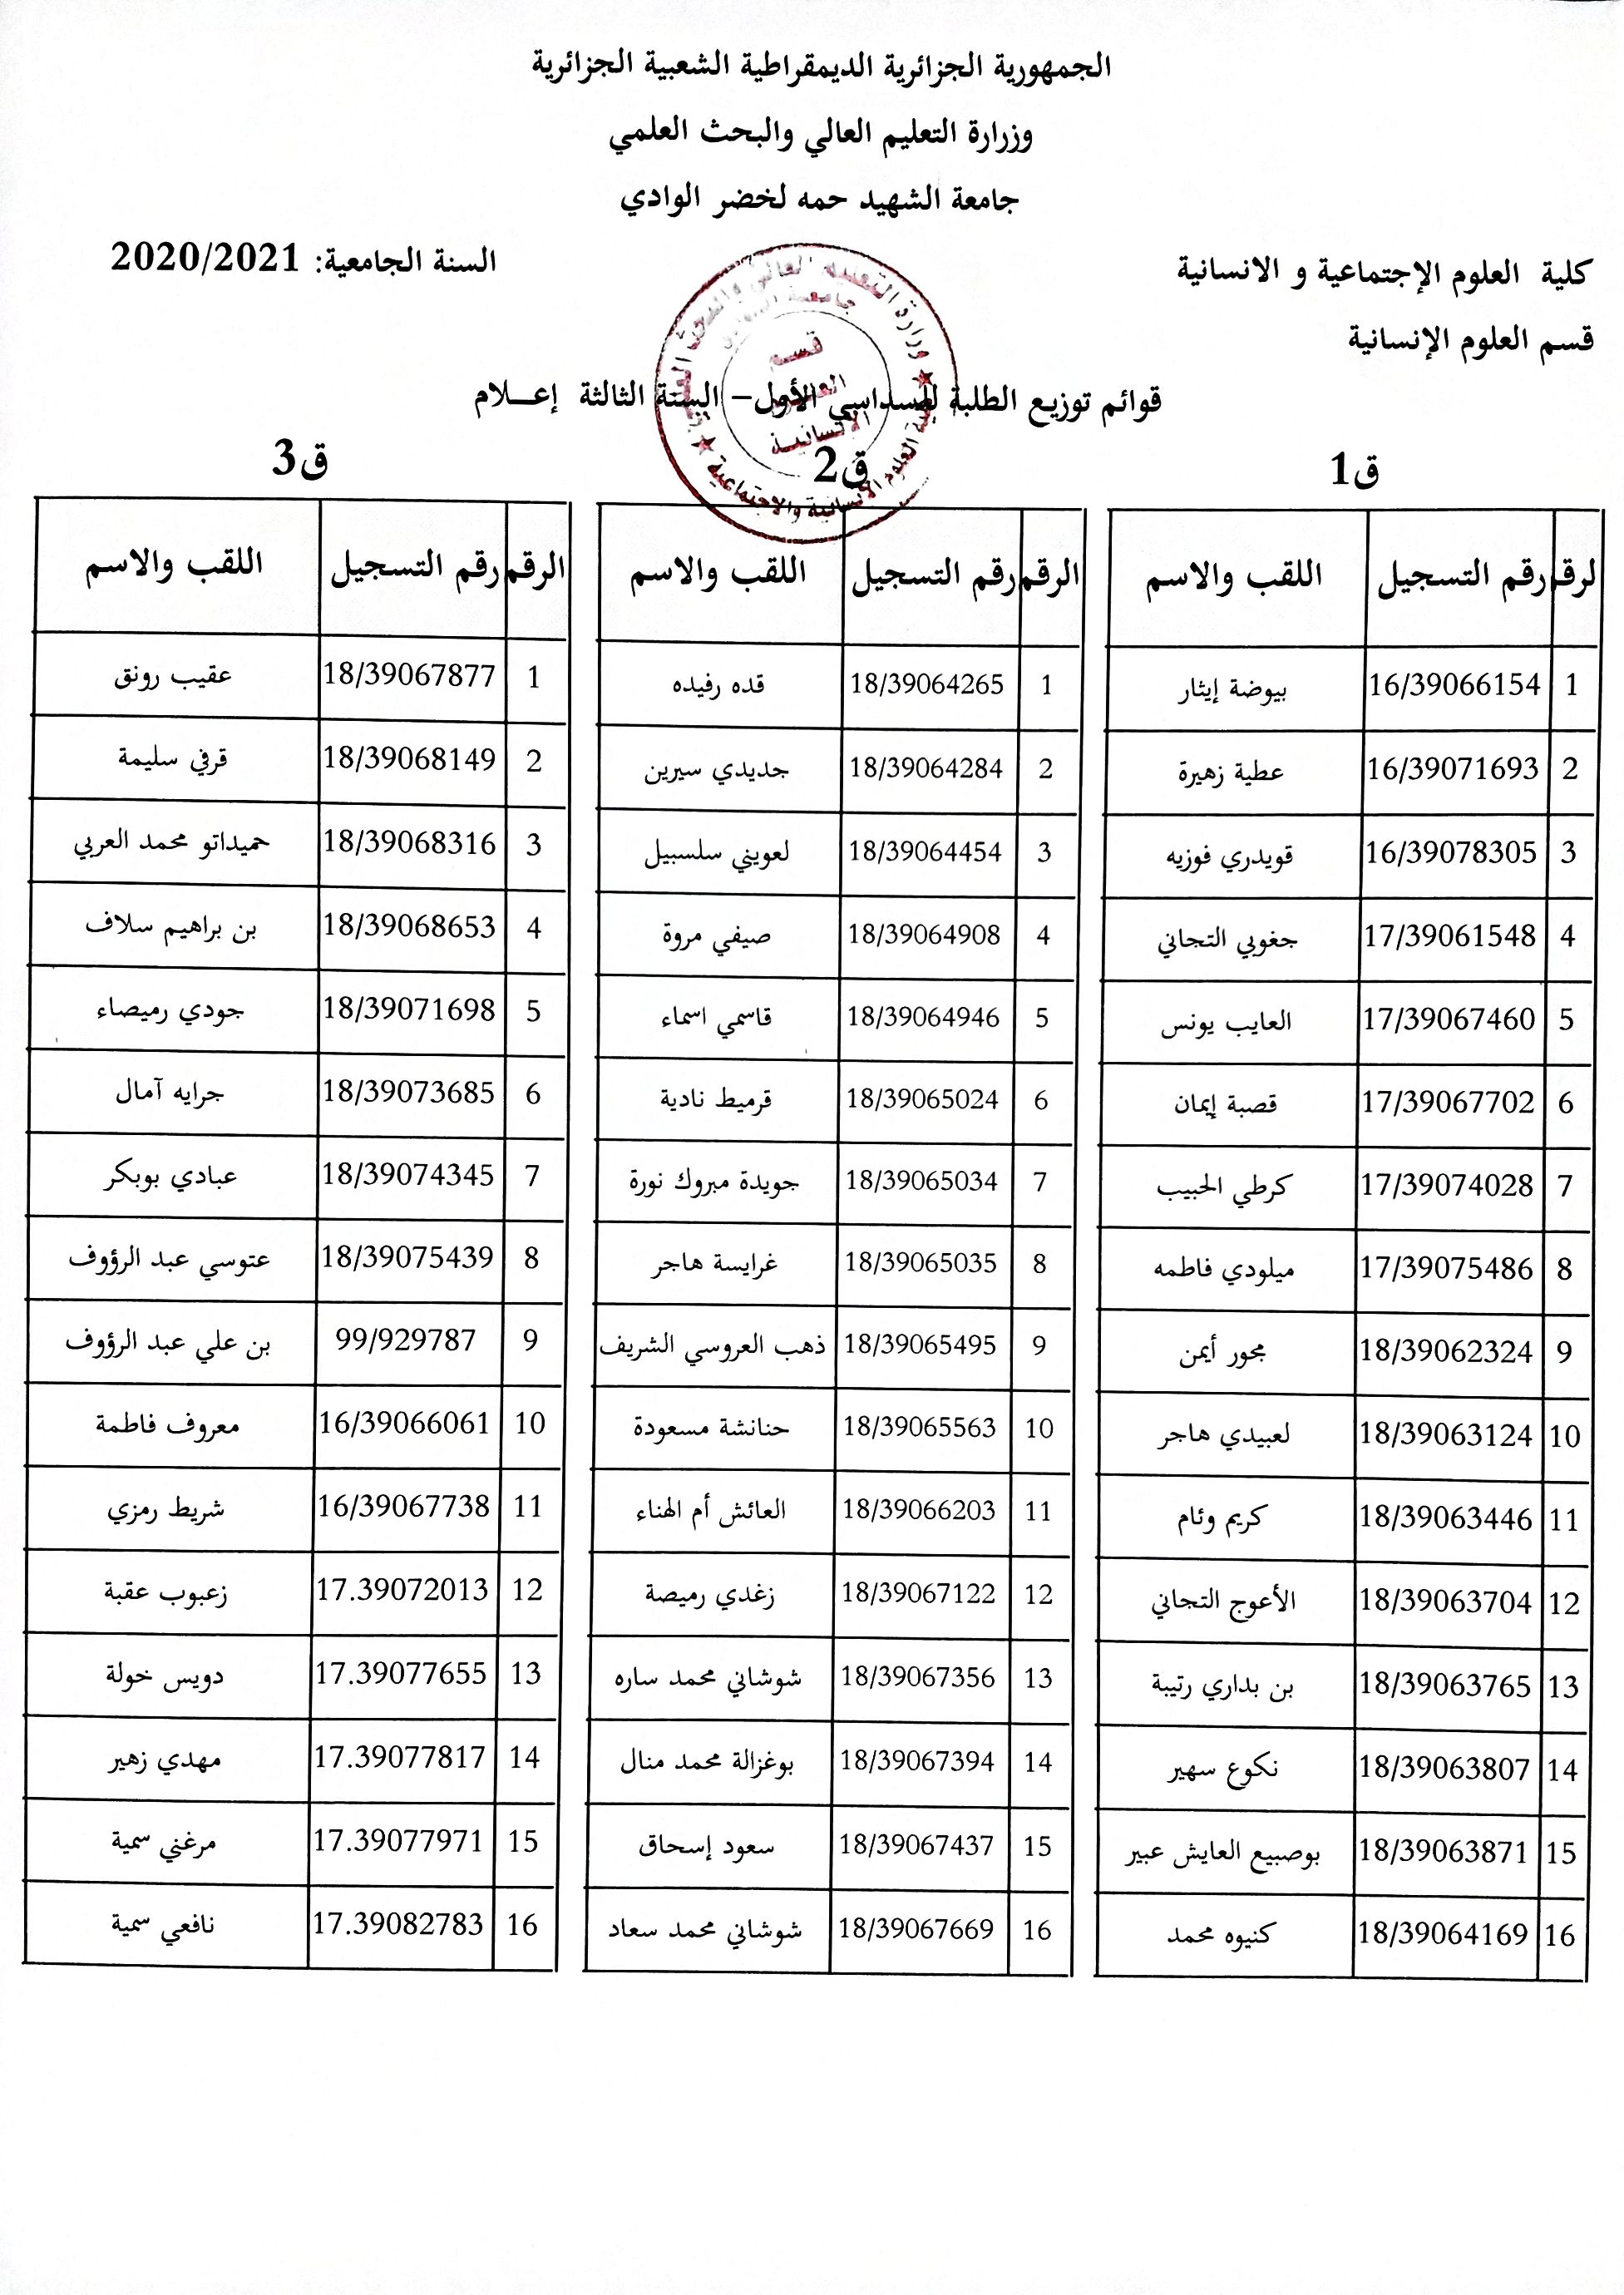 الجمهورية الجزائرية الديمقراطية الشعبية الجزائرية
وزرارة التعليم العالي والبحث العلمي
جامعة الشهيد حمه لخضر الوادي
كلية العلوم الإجتماعية و الانسانية
السنة الجامعية: 2020/2021
قسم العلوم الإنسانية
قوائم توزيع الطلبة للسداسي الأول– السنة الثالثة إعـــلام
قسم
العلوم
الإنسانية
ق1
لرقم رقم التسجيل اللقب والاسم
1 16/39066154 بيوضة إيثار
2 16/39071693 عطية زهيرة
3 16/39078305 قويدري فوزيه
4 17/39061548 جغوبي التجاني
5 17/39067460 العايب يونس
6 17/39067702 قصبة إيمان
7 17/39074028 كرطي الحبيب
8 17/39075486 ميلودي فاطمه
9 18/39062324 محور أيمن
10 18/39063124 لعبيدي هاجر
11 18/39063446 كريم وئام
12 18/39063704 الأعوج التجاني
13 18/39063765 بن بداري رتيبة
14 18/39063807 نكوع سهير
15 18/39063871 بوصبيع العايش عبير
16 18/39064169 كنيوه محمد
ق2
الرقم رقم التسجيل اللقب والاسم
1 18/39064265 قده رفيده
2 18/39064284 جديدي سيرين
3 18/39064454 لعويني سلسبيل
4 18/39064908 صيفي مروة
5 18/39064946 قاسمي اسماء
6 18/39065024 قرميط نادية
7 18/39065034 جويدة مبروك نورة
8 18/39065035 غرايسة هاجر
9 18/39065495 ذهب العروسي الشريف
10 18/39065563 حنانشة مسعودة
11 18/39066203 العائش أم الهناء
12 18/39067122 زغدي رميصة
13 18/39067356 شوشاني محمد ساره
14 18/39067394 بوغزالة محمد منال
15 18/39067437 سعود إسحاق
16 18/39067669 شوشاني محمد سعاد
ق3
الرقم رقم التسجيل اللقب والاسم
1 18/39067877 عقيب رونق
2 18/39068149 قرفي سليمة
3 18/39068316 حميداتو محمد العربي
4 18/39068653 بن براهيم سلاف
5 18/39071698 جودي رميصاء
6 18/39073685 جرايه آمال
7 18/39074345 عبادي بوبكر
8 18/39075439 عتوسي عبد الرؤوف
9 99/929787 بن علي عبد الرؤوف
10 16/39066061 معروف فاطمة
11 16/39067738 شريط رمزي
12 17.39072013 زعبوب عقبة
13 17.39077655 دويس خولة
14 17.39077817 مهدي زهير
15 17.39077971 مرغني سمية
16 17.39082783 نافعي سمية